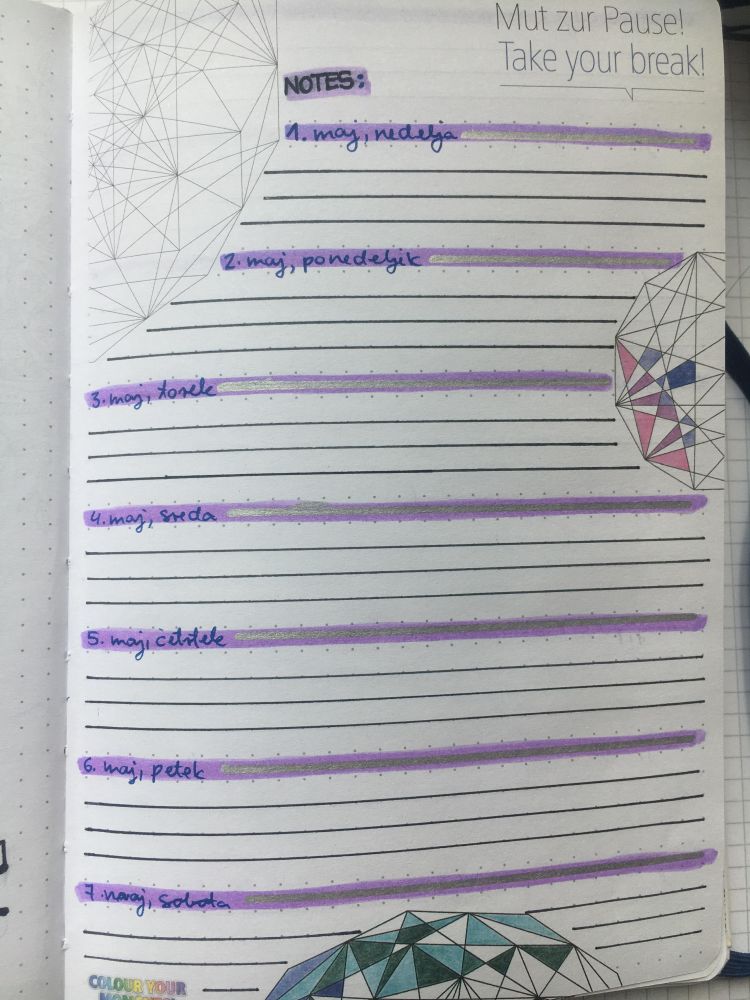 Mut zur Pause!
Take your break!
NOTES:
1. maj, nedelja
2. maj, ponedeljek
3. maj, torek
4. maj, sreda
5. maj, četrtek
6. maj, petek
7. maj, sobota
COLOUR YOUR